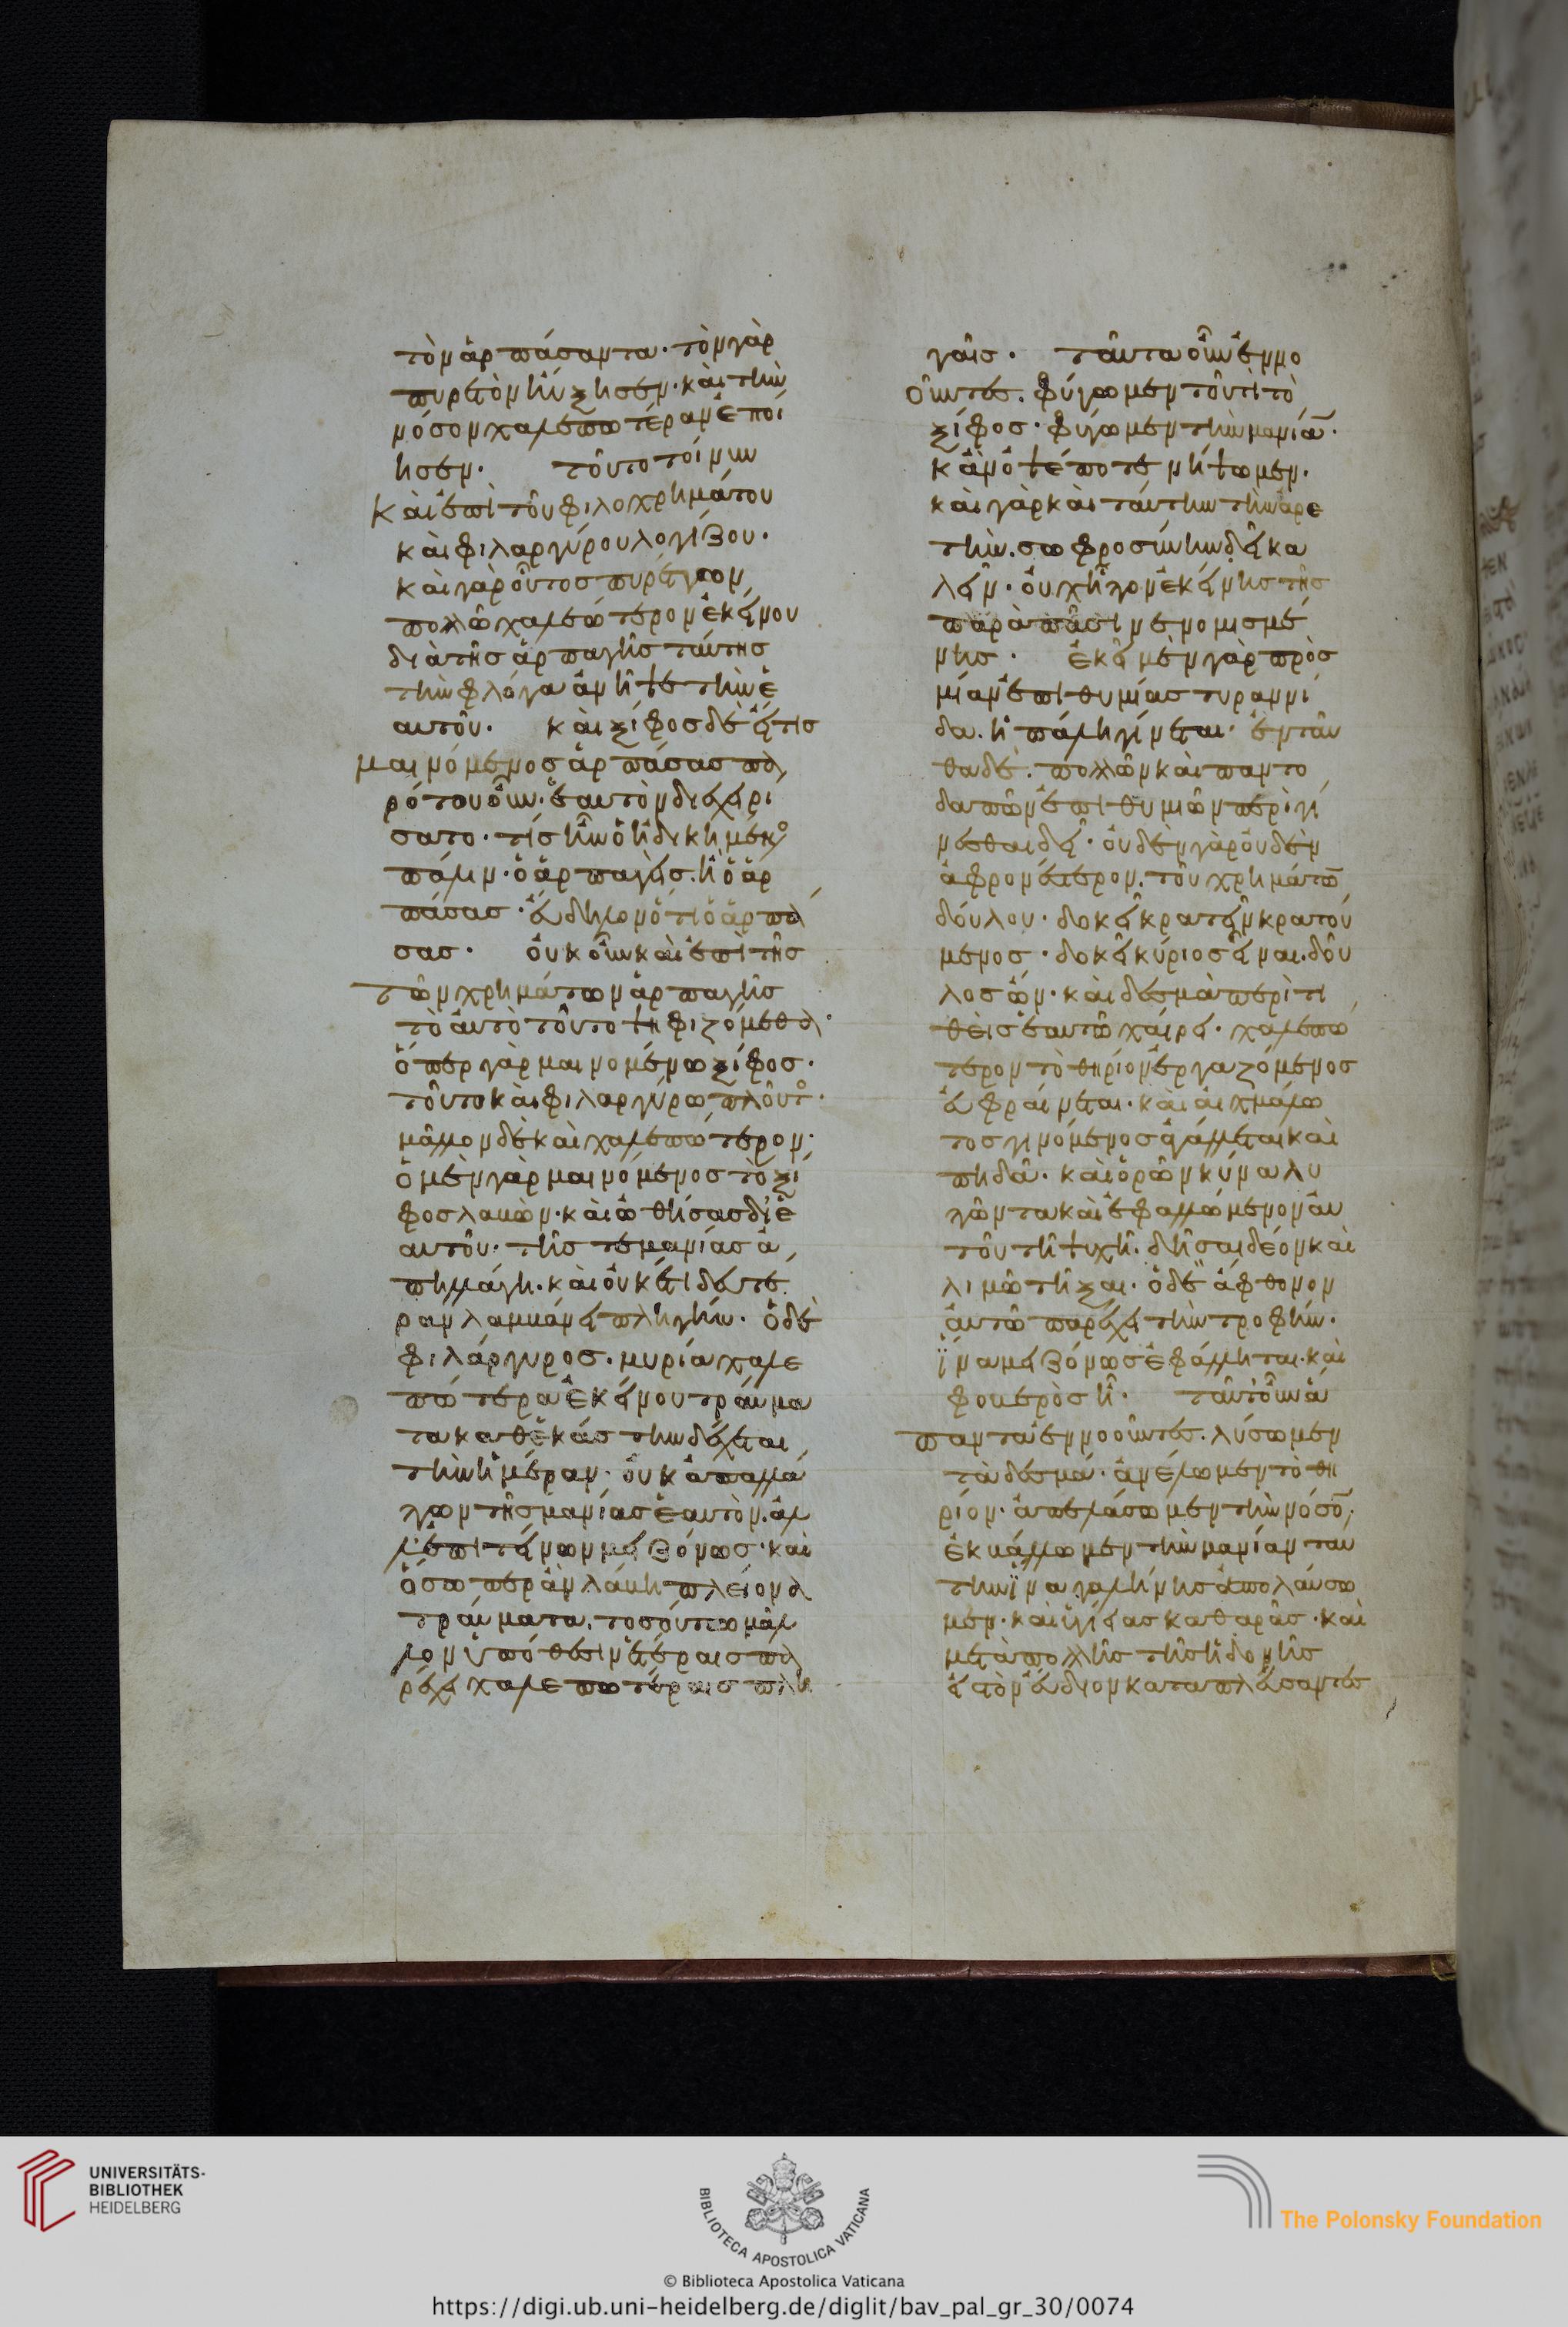 τὸν ἁρπάσαντα· τὸν γὰρ
πυρετὸν ηὔξησεν· καὶ τὴν
νόσον χαλεπωτέραν ἐποί
ησεν· τοῦτο τοίνυν
καὶ ἐπὶ τοῦ φιλοχρημάτου
καὶ φιλαργύρου λογίζου·
καὶ γὰρ οὗτος πυρέττων
πολλῶ χαλεπώτερον ἐκείνου
διὰ τῆς ἁρπαγῆς ταύτης
τὴν φλόγα ἀνῆψε τὴν ἑ
αυτοῦ· καὶ ξίφος δὲ εἴ τις
μαινόμενος ἁρπάσας πα
ρά του οὖν· ἑαυτὸν διεχειρί
σατο· τίς ἦν ὁ ἠδικημένος
πάλιν· ὁ ἁρπαγεὶς· ἢ ὁ ἁρ
πάσας· εὔδηλον ὅτι ὁ ἁρπά
σας· οὐκοῦν καὶ ἐπὶ τῆς
τῶν χρημάτων ἁρπαγῆς
τὸ αὐτὸ τοῦτο ψηφιζόμεθα·
ὅπερ γὰρ μαινομένω ξίφος·
τοῦτο καὶ φιλαργύρω πλοῦτος·
μᾶλλον δὲ καὶ χαλεπώτερον·
ὁ μὲν γὰρ μαινόμενος τὸ ξί
φος λαβὼν· καὶ ὠθήσας δι' ἑ
αυτοῦ· τῆς τε μανίας ἀ
πηλλάγη· καὶ οὐκέτι δευτέ
ραν λαμβάνει πληγήν· ὁ δὲ
φιλάργυρος· μυρία χαλε
πώτερα ἐκείνου τραύμα
τα καθ' ἑκάστην δέχεται
τὴν ἡμέραν· οὐκ ἀπαλλάτ
των τῆς μανίας ἑαυτὸν· ἀλ
λ' ἐπιτείνων μειζόνως· καὶ
ὅσω περ ἂν λάβη πλείονα
τραύματα· τοσούτω μᾶλ
λον ὑπόθεσιν ἑτέραις πα
ρέχει χαλεπωτέραις πλη
γαῖς· ταῦτα οὖν ἐννο
οῦντες· φύγωμεν τουτὶ τὸ
ξίφος· φύγωμεν τὴν μανίαν·
κἂν ὀψέ ποτε νήψωμεν·
καὶ γὰρ καὶ ταύτην τὴν ἀρε
τὴν· σωφροσύνην δεῖ κα
λεῖν· οὐχ ἧττον ἐκείνης τῆς
παρὰ πᾶσι νενομισμέ
νης· ἐκεῖ μὲν γὰρ πρὸς
μίαν ἐπιθυμίας τυραννί
δα· ἡ πάλη γίνεται· ἐνταῦ
θα δὲ· πολλῶν καὶ παντο
δαπῶν ἐπιθυμιῶν περιγί
νεσθαι δεῖ· οὐδὲν γὰρ οὐδὲν
ἀφρονέστερον· τοῦ χρημάτων
δούλου· δοκεῖ κρατεῖν κρατού
μενος· δοκεῖ κύριος εἶναι· δοῦ
λος ὢν· καὶ δεσμὰ περιτι
θεὶς ἑαυτῶ χαίρει· χαλεπώ
τερον τὸ θηρίον ἐργαζόμενος
εὐφραίνεται· καὶ αἰχμάλω
τος γινόμενος ἀγάλλεται καὶ
πηδᾶ· καὶ ὁρῶν κύνα λυτ
τῶντα καὶ ἐφαλλόμενον αὐ
τοῦ τῆ ψυχῆ· δῆσαι δέον καὶ
λιμῶ τῆξαι· ὁ δὲ ἄφθονον
αὐτῶ παρέχει τὴν τροφήν·
ἵνα μειζόνως ἐφάλληται· καὶ
φοβερὸς ἦ· ταῦτ' οὖν ἅ
παντα ἐννοοῦντες· λύσωμεν
τὰ δεσμὰ· ἀνέλωμεν τὸ θη
ρίον· ἀπελάσωμεν τὴν νόσον·
ἐκβάλλωμεν τὴν μανίαν ταύ
την ἵνα γαλήνης ἀπολαύσω
μεν· καὶ ὑγιείας καθαρᾶς· καὶ
μετὰ πολλῆς τῆς ἡδονῆς
εἰς τὸν εὔδιον καταπλεύσαντες
UNIVERSITÄTS-
BIBLIOTHEK
HEIDELBERG
BIBLIOTECA APOSTOLICA VATICANA
The Polonsky Foundation
© Biblioteca Apostolica Vaticana
https://digi.ub.uni-heidelberg.de/diglit/bav_pal_gr_30/0074